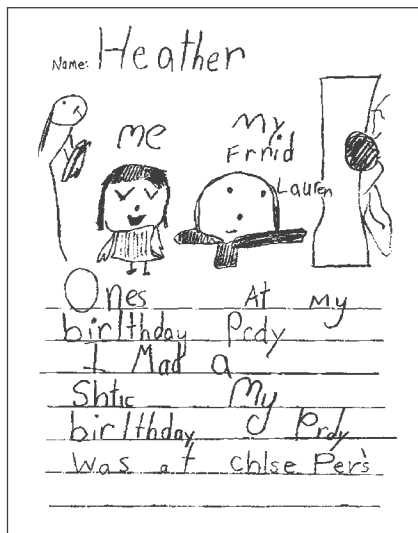 Name: Heather
me
My
Frnid
Lauren
Ones At My
birlthday Prdy
I Mad a
Shtic My
birlthday Prdy
was at chlse Per's